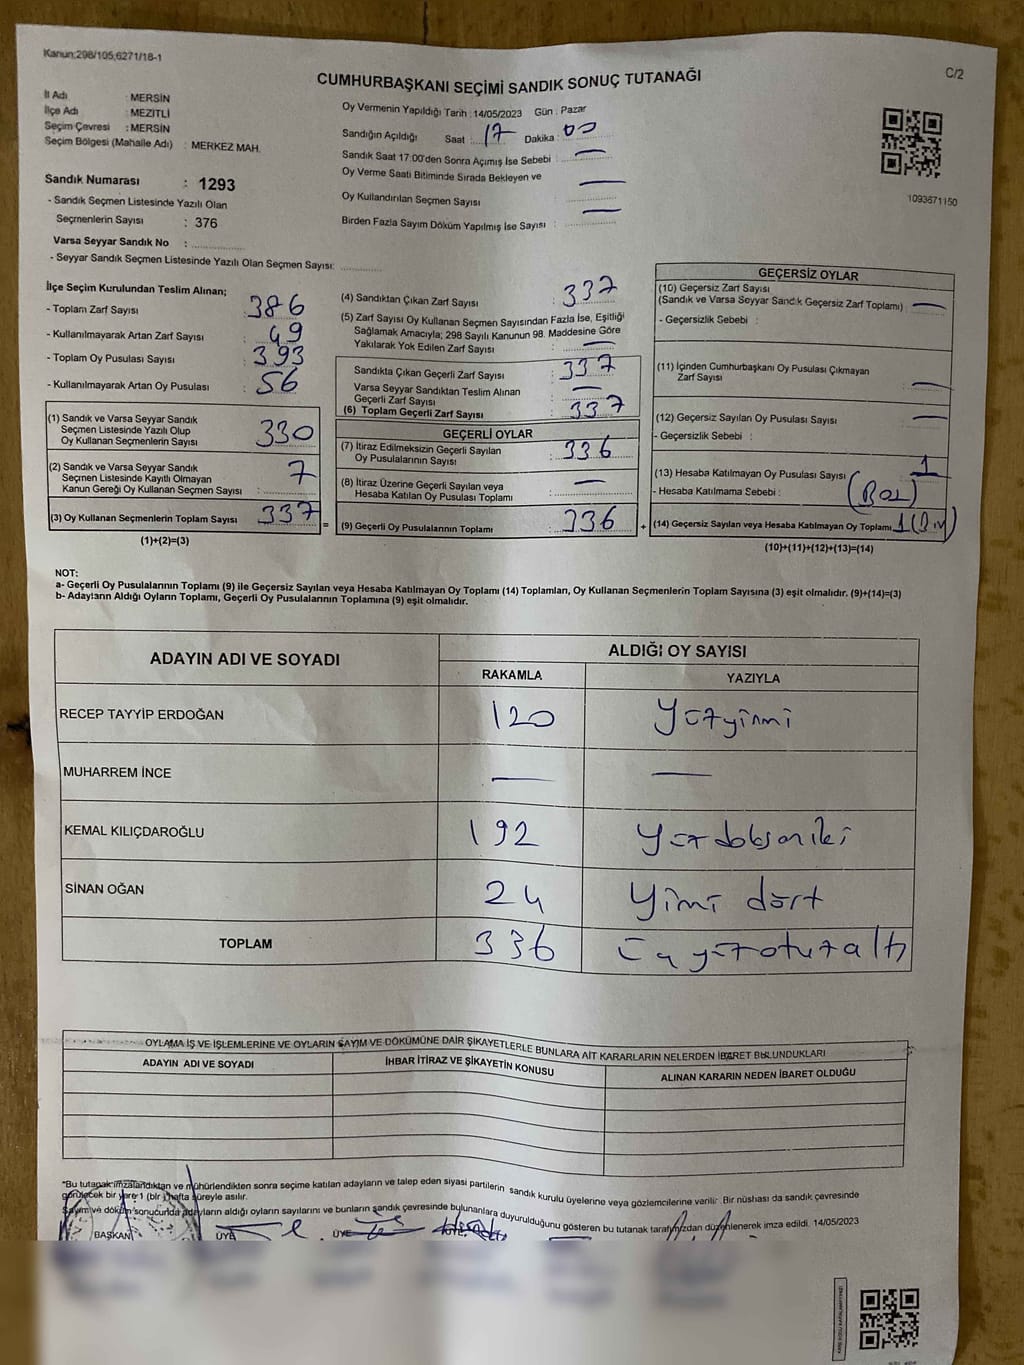 Kanun:298/105,6271/18-1
C/2
CUMHURBAŞKANI SEÇİMİ SANDIK SONUÇ TUTANAĞI
İl Adı : MERSİN
İlçe Adı : MEZİTLİ
Seçim Çevresi : MERSİN
Seçim Bölgesi (Mahalle Adı) : MERKEZ MAH.
Sandık Numarası : 1293
- Sandık Seçmen Listesinde Yazılı Olan
Seçmenlerin Sayısı : 376
Varsa Seyyar Sandık No :
- Seyyar Sandık Seçmen Listesinde Yazılı Olan Seçmen Sayısı:
Oy Vermenin Yapıldığı Tarih : 14/05/2023 Gün : Pazar
Sandığın Açıldığı Saat : 17 Dakika : 00
Sandık Saat 17:00'den Sonra Açımış İse Sebebi : —
Oy Verme Saati Bitiminde Sırada Bekleyen ve
Oy Kullandırılan Seçmen Sayısı —
Birden Fazla Sayım Döküm Yapılmış İse Sayısı : —
1093671150
İlçe Seçim Kurulundan Teslim Alınan;
- Toplam Zarf Sayısı : 386
- Kullanılmayarak Artan Zarf Sayısı : 49
- Toplam Oy Pusulası Sayısı : 393
- Kullanılmayarak Artan Oy Pusulası : 56
(1) Sandık ve Varsa Seyyar Sandık
Seçmen Listesinde Yazılı Olup
Oy Kullanan Seçmenlerin Sayısı : 330
(2) Sandık ve Varsa Seyyar Sandık
Seçmen Listesinde Kayıtlı Olmayan
Kanun Gereği Oy Kullanan Seçmen Sayısı : 7
(3) Oy Kullanan Seçmenlerin Toplam Sayısı : 337 =
(1)+(2)=(3)
(4) Sandıktan Çıkan Zarf Sayısı : 337
(5) Zarf Sayısı Oy Kullanan Seçmen Sayısından Fazla İse, Eşitliği
Sağlamak Amacıyla; 298 Sayılı Kanunun 98. Maddesine Göre
Yakılarak Yok Edilen Zarf Sayısı : —
Sandıkta Çıkan Geçerli Zarf Sayısı : 337
Varsa Seyyar Sandıktan Teslim Alınan
Geçerli Zarf Sayısı : —
(6) Toplam Geçerli Zarf Sayısı : 337
GEÇERLİ OYLAR
(7) İtiraz Edilmeksizin Geçerli Sayılan
Oy Pusulalarının Sayısı : 336
(8) İtiraz Üzerine Geçerli Sayılan veya
Hesaba Katılan Oy Pusulası Toplamı : —
(9) Geçerli Oy Pusulalarının Toplamı : 336 +
GEÇERSİZ OYLAR
(10) Geçersiz Zarf Sayısı
(Sandık ve Varsa Seyyar Sandık Geçersiz Zarf Toplamı) : —
- Geçersizlik Sebebi :
(11) İçinden Cumhurbaşkanı Oy Pusulası Çıkmayan
Zarf Sayısı : —
(12) Geçersiz Sayılan Oy Pusulası Sayısı : —
- Geçersizlik Sebebi :
(13) Hesaba Katılmayan Oy Pusulası Sayısı : 1
- Hesaba Katılmama Sebebi :
(14) Geçersiz Sayılan veya Hesaba Katılmayan Oy Toplamı : 1 (Bir)
(10)+(11)+(12)+(13)=(14)
NOT:
a- Geçerli Oy Pusulalarının Toplamı (9) ile Geçersiz Sayılan veya Hesaba Katılmayan Oy Toplamı (14) Toplamları, Oy Kullanan Seçmenlerin Toplam Sayısına (3) eşit olmalıdır. (9)+(14)=(3)
b- Adayların Aldığı Oyların Toplamı, Geçerli Oy Pusulalarının Toplamına (9) eşit olmalıdır.
ADAYIN ADI VE SOYADI
ALDIĞI OY SAYISI
RAKAMLA YAZIYLA
RECEP TAYYİP ERDOĞAN 120 Yüzyirmi
MUHARREM İNCE — —
KEMAL KILIÇDAROĞLU 192 Yüzdoksaniki
SİNAN OĞAN 24 Yirmi dört
TOPLAM 336 üçyüzotuzaltı
OYLAMA İŞ VE İŞLEMLERİNE VE OYLARIN SAYIM VE DÖKÜMÜNE DAİR ŞİKAYETLERLE BUNLARA AİT KARARLARIN NELERDEN İBARET BULUNDUKLARI
ADAYIN ADI VE SOYADI İHBAR İTİRAZ VE ŞİKAYETİN KONUSU ALINAN KARARIN NEDEN İBARET OLDUĞU
*Bu tutanak imzalandıktan ve mühürlendikten sonra seçime katılan adayların ve talep eden siyasi partilerin sandık kurulu üyelerine veya gözlemcilerine verilir. Bir nüshası da sandık çevresinde
görülecek bir yere 1 (bir) hafta süreyle asılır.
Sayım ve döküm sonucunda adayların aldığı oyların sayılarını ve bunların sandık çevresinde bulunanlara duyurulduğunu gösteren bu tutanak tarafımızdan düzenlenerek imza edildi. 14/05/2023
BAŞKAN ÜYE ÜYE ÜYE